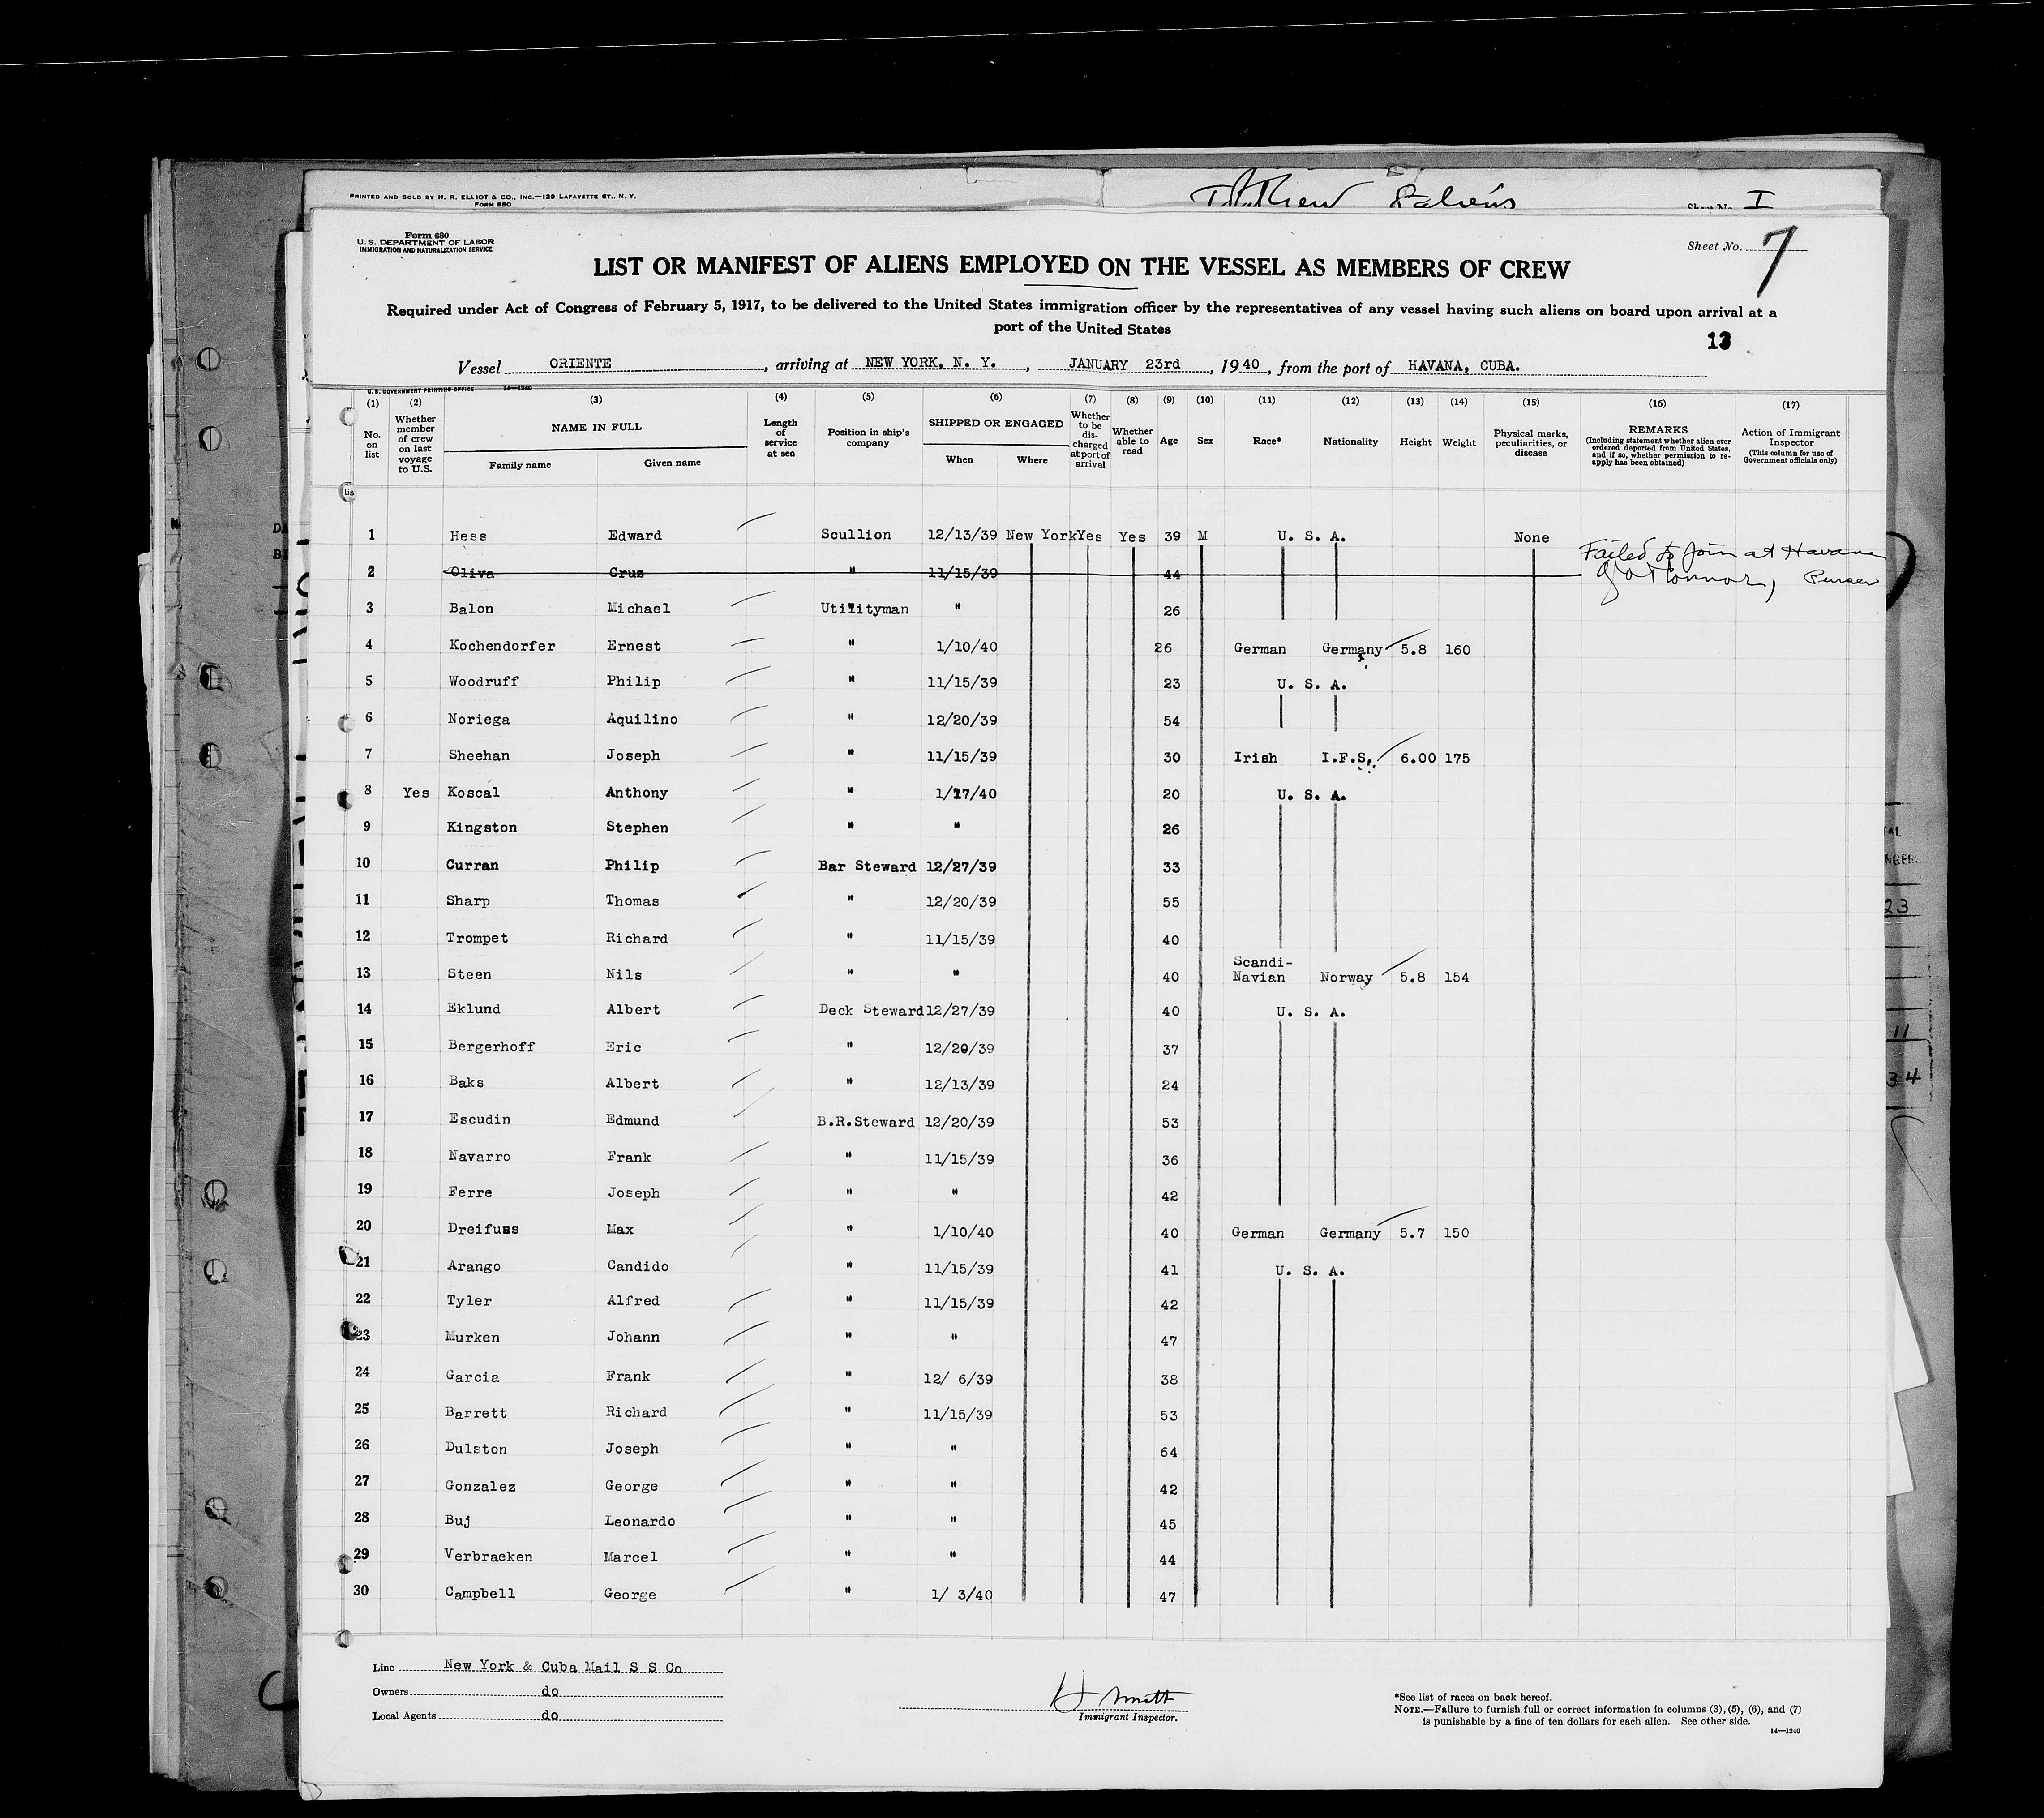 PRINTED AND SOLD BY H. R. ELLIOT & CO., INC.—129 LAFAYETTE ST., N. Y.
FORM 680
Sheet No. I
Form 680
U. S. DEPARTMENT OF LABOR
IMMIGRATION AND NATURALIZATION SERVICE
Sheet No. 7
LIST OR MANIFEST OF ALIENS EMPLOYED ON THE VESSEL AS MEMBERS OF CREW
Required under Act of Congress of February 5, 1917, to be delivered to the United States immigration officer by the representatives of any vessel having such aliens on board upon arrival at a
port of the United States
13
Vessel ORIENTE, arriving at NEW YORK, N. Y., JANUARY 23rd, 1940, from the port of HAVANA, CUBA.
U. S. GOVERNMENT PRINTING OFFICE 14—1240
(1) (2) (3) (4) (5) (6) (7) (8) (9) (10) (11) (12) (13) (14) (15) (16) (17)
No. on list
Whether member of crew on last voyage to U.S.
NAME IN FULL
Family name
Given name
Length of service at sea
Position in ship's company
SHIPPED OR ENGAGED
When
Where
Whether to be discharged at port of arrival
Whether able to read
Age
Sex
Race*
Nationality
Height
Weight
Physical marks, peculiarities, or disease
REMARKS
(Including statement whether alien ever ordered deported from United States, and if so, whether permission to reapply has been obtained)
Action of Immigrant Inspector
(This column for use of Government officials only)
1 Hess Edward Scullion 12/13/39 New York Yes Yes 39 M U. S. A. None
Failed to join at Havana
2 Oliva Cruz " 11/15/39 44 J O'Connor, Purser
3 Balon Michael Utilityman " 26
4 Kochendorfer Ernest " 1/10/40 26 German Germany 5.8 160
5 Woodruff Philip " 11/15/39 23 U. S. A.
6 Noriega Aquilino " 12/20/39 54
7 Sheehan Joseph " 11/15/39 30 Irish I.F.S. 6.00 175
8 Yes Koscal Anthony " 1/17/40 20 U. S. A.
9 Kingston Stephen " " 26
10 Curran Philip Bar Steward 12/27/39 33
11 Sharp Thomas " 12/20/39 55
12 Trompet Richard " 11/15/39 40
13 Steen Nils " " 40 Scandi-Navian Norway 5.8 154
14 Eklund Albert Deck Steward 12/27/39 40 U. S. A.
15 Bergerhoff Eric " 12/20/39 37
16 Baks Albert " 12/13/39 24
17 Escudin Edmund B.R.Steward 12/20/39 53
18 Navarro Frank " 11/15/39 36
19 Ferre Joseph " " 42
20 Dreifuss Max " 1/10/40 40 German Germany 5.7 150
21 Arango Candido " 11/15/39 41 U. S. A.
22 Tyler Alfred " 11/15/39 42
23 Murken Johann " " 47
24 Garcia Frank " 12/ 6/39 38
25 Barrett Richard " 11/15/39 53
26 Dulston Joseph " " 64
27 Gonzalez George " " 42
28 Buj Leonardo " " 45
29 Verbraeken Marcel " " 44
30 Campbell George " 1/ 3/40 47
Line New York & Cuba Mail S S Co
Owners do
Local Agents do
H Smith
Immigrant Inspector.
*See list of races on back hereof.
NOTE.—Failure to furnish full or correct information in columns (3), (5), (6), and (7)
is punishable by a fine of ten dollars for each alien. See other side.
14—1240
23
11
34